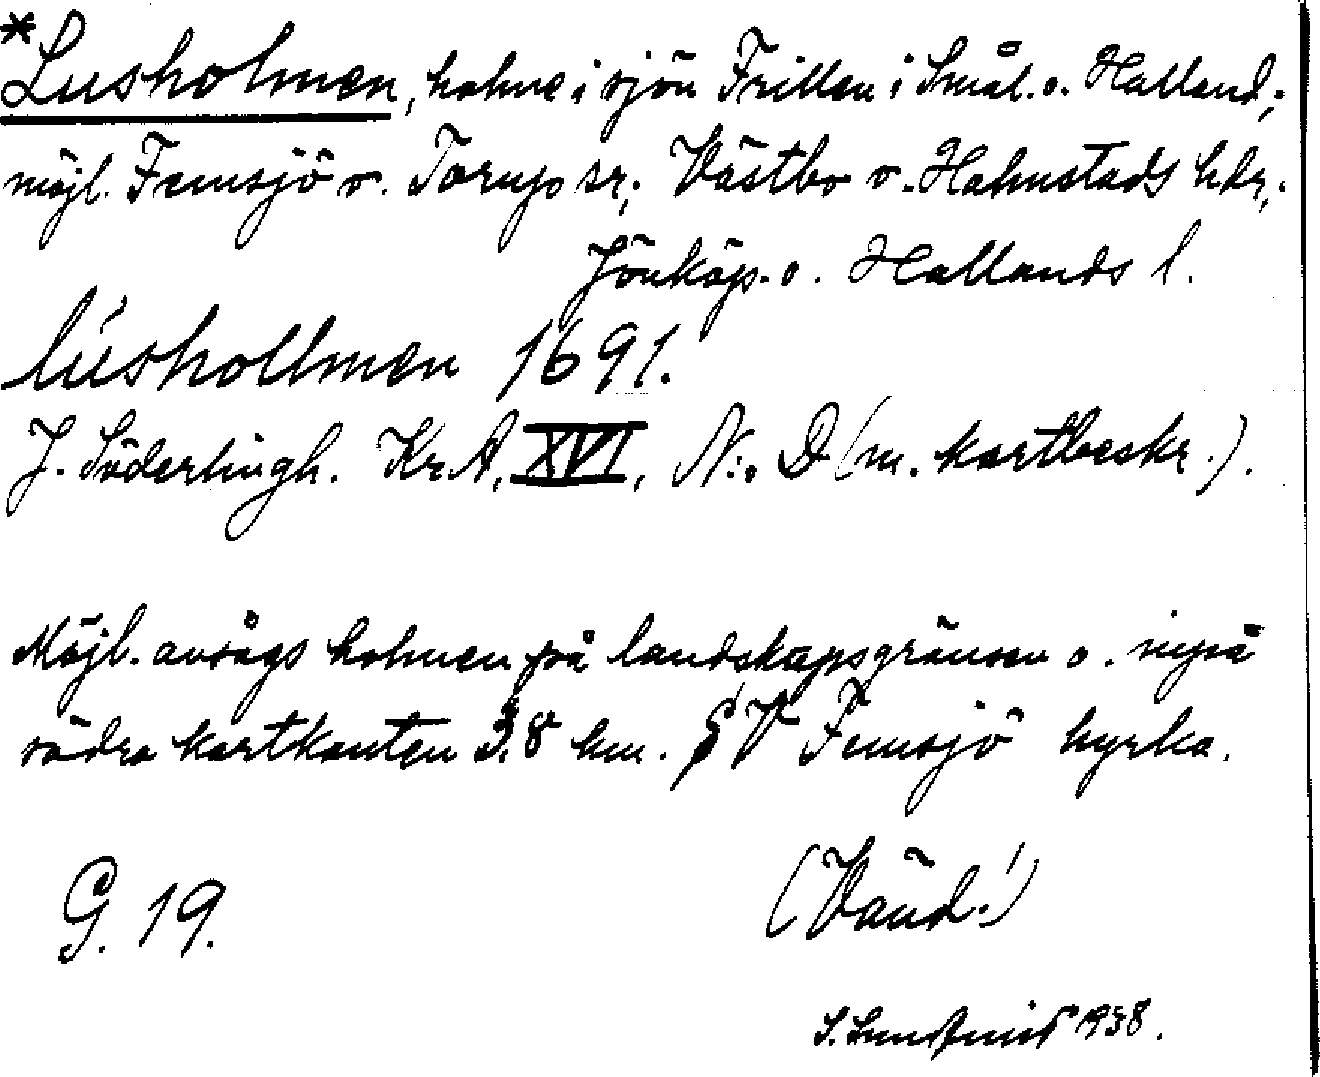 *Lusholmen, holme i sjön Frillen i Smål. o. Halland;
möjl. Femsjö o. Torups sr, Västbo o. Halmstads hdr,
Jönköp. o. Hallands l.
lúshollmen 1691.
J. Söderlingh. Kr A, XVI, N:o D (m. kartbeskr.).
Möjl. avsågs holmen på landskapsgränsen o. invid
södra kartkanten 3.8 km. SV Femsjö kyrka.
G. 19.
(Vänd!)
1938.